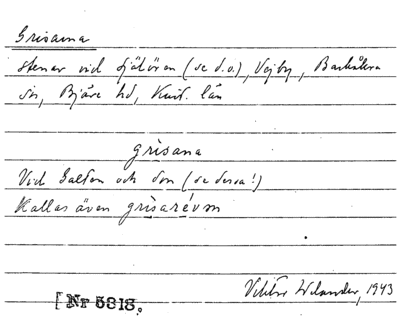 Grisarna
stenar vid sjötören (se d.o.), Vejby, Barkåkra
sn, Bjäre hd, Krist. län
grisana
Vid Galten och son (se dessa!)
Kallas även grisarévm
Viktor Wlander, 1943
[Nr 5818.